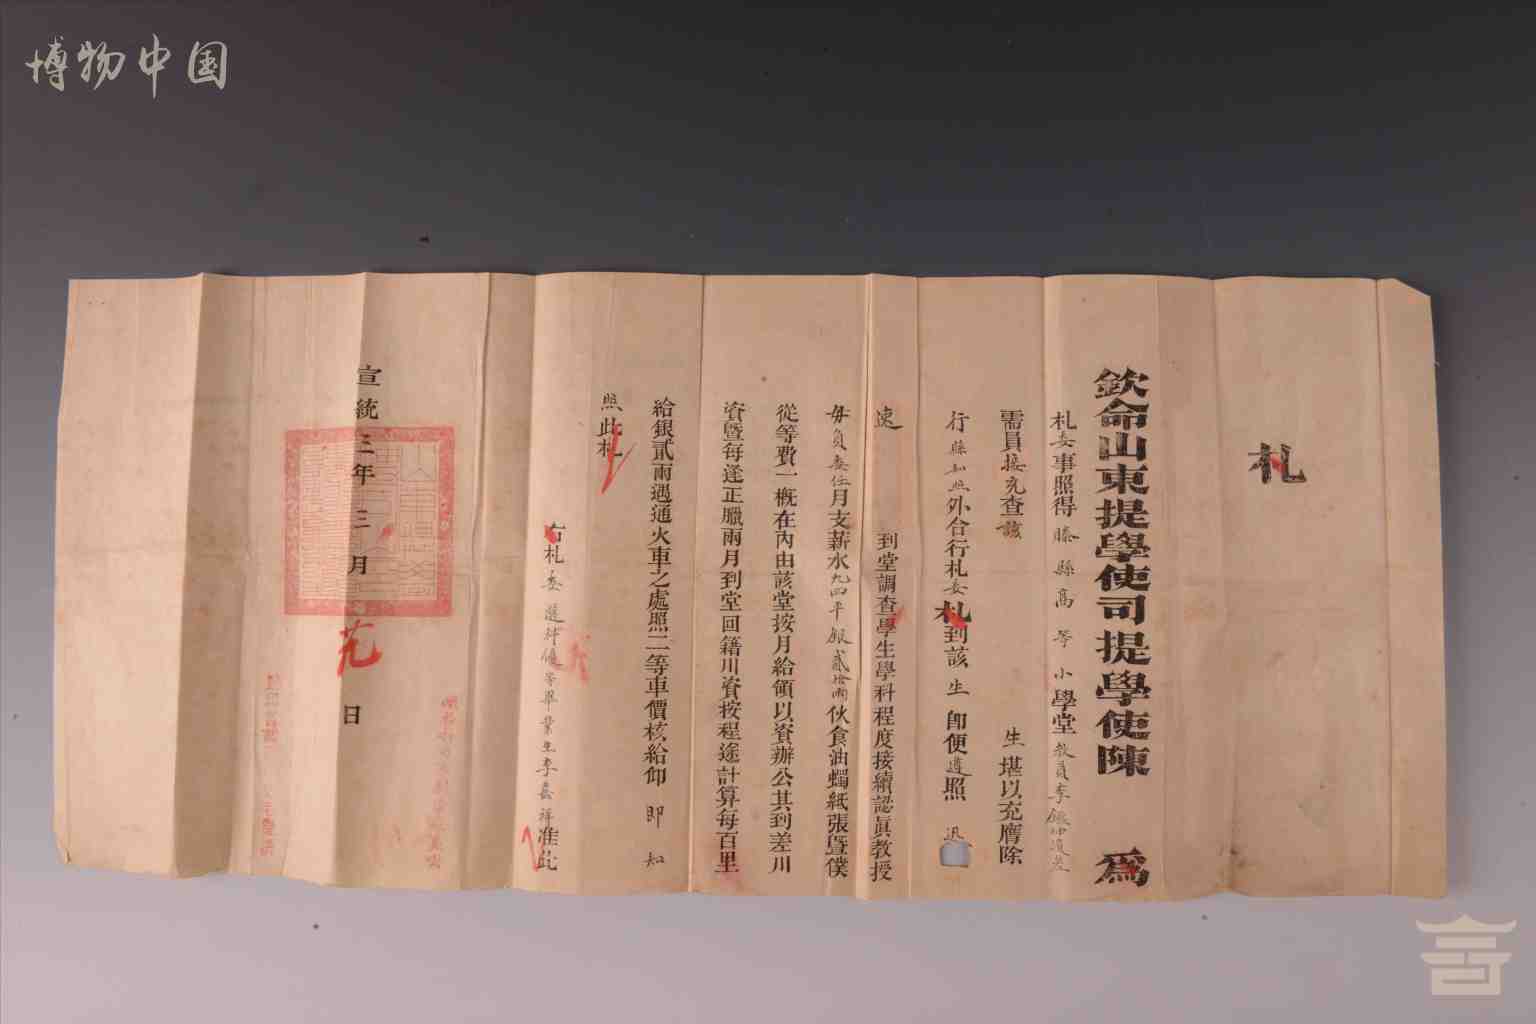 博物中国
札
欽命山東提學使司提學使陳 為
札委事照得滕縣高等小學堂教員李
需員接充查該 生堪以充膺除
行縣知照外合行札委札到該生即便遵照迅
速 到堂調查學生學科程度接續認眞教授
每員委任月支薪水九四平銀貳拾兩伙食油蠋紙張曁僕
從等費一概在內由該堂按月給領以資辦公其到差川
資曁每逢正臘兩月到堂回籍川資按程途計算每百里
給銀貳兩遇通火車之處照二等車價核給仰即知
照此札
右札委選科優等畢業生李嘉祥准此
宣統三年三月 日